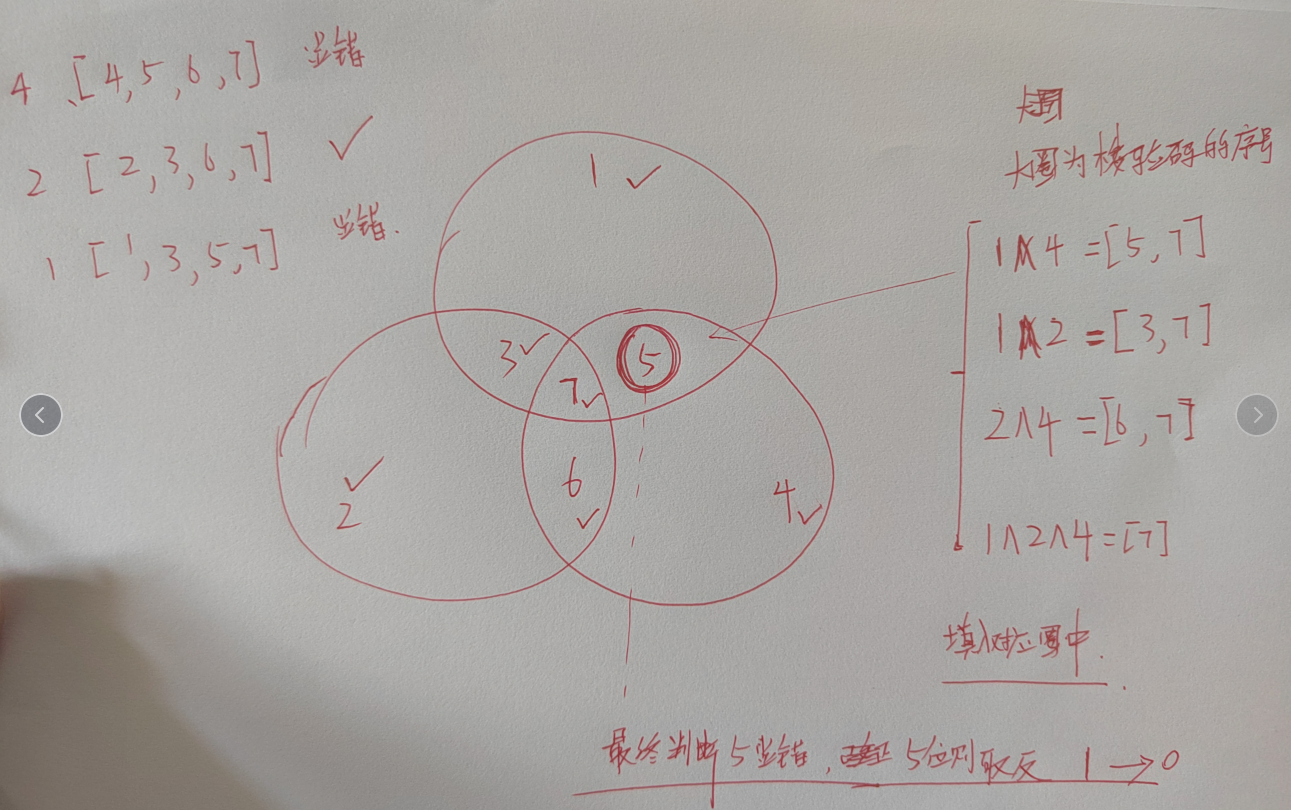 4 [4,5,6,7] 出错
2 [2,3,6,7] ✓
1 [1,3,5,7] 出错.
1 ✓
3 ✓
5
7 ✓
6 ✓
2 ✓
4 ✓
大圈
大圈为校验码的序号
1∧4=[5,7]
1∧2=[3,7]
2∧4=[6,7]
1∧2∧4=[7]
填入对应圈中.
最终判断5出错, 5位则取反 1→0